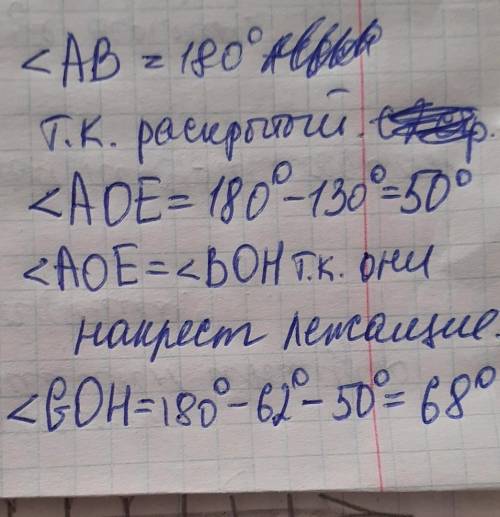 <AB = 180°
т.к. раскрытый.
<AOE = 180° - 130° = 50°
<AOE = <BOH т.к. они
накрест лежащие.
<GOH = 180° - 62° - 50° = 68°